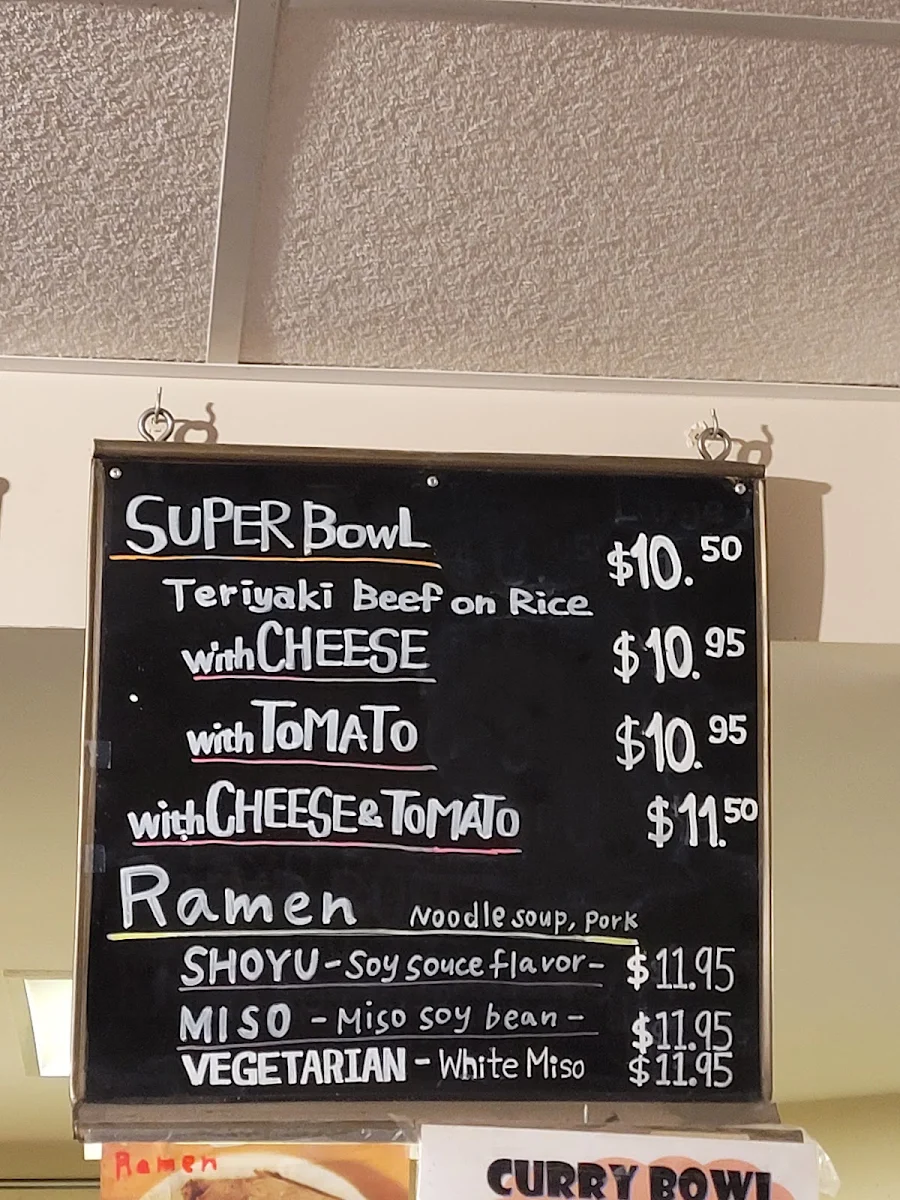 SUPER BowL $10.50
Teriyaki Beef on Rice
with CHEESE $10.95
with ToMATo $10.95
with CHEESE & ToMATo $11.50
Ramen Noodle soup, Pork
SHOYU - Soy souce flavor - $11.95
MISO - Miso soy bean - $11.95
VEGETARIAN - White Miso $11.95
Ramen
CURRY BOWL